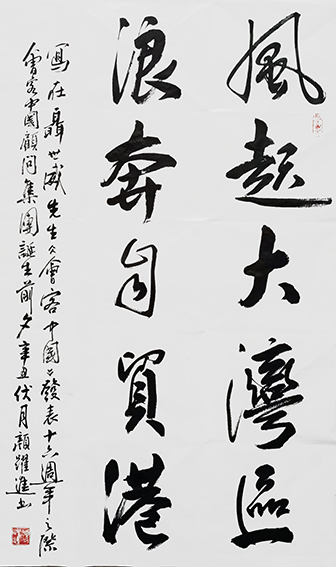 風起大灣區
浪奔自貿港
寫在聶世威先生《會客中國》發表十六週年之際
會客中國顧問集團誕生前夕辛丑伏月顏躍進書